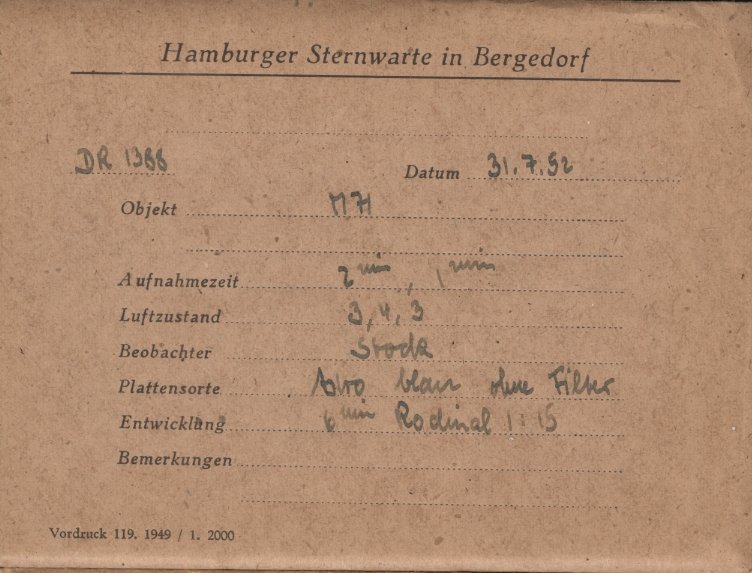 Hamburger Sternwarte in Bergedorf
DR 1388
Datum 31.7.52
Objekt M 71
Aufnahmezeit 2 min, 1 min
Luftzustand 3, 4, 3
Beobachter Stock
Plattensorte blau ohne Filter
Entwicklung 6 min Rodinal 1:15
Bemerkungen
Vordruck 119. 1949 / 1. 2000